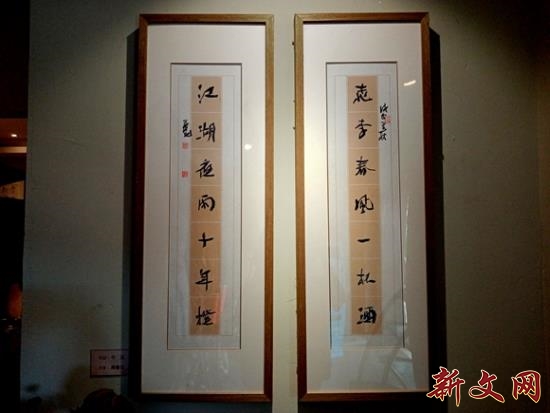 桃李春風一杯酒
江湖夜雨十年燈
新文网